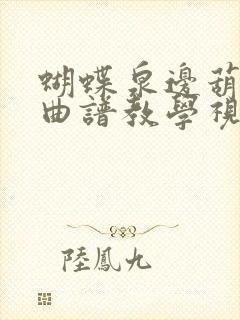 蝴蝶泉邊葫
曲譜教學視
陸鳳九